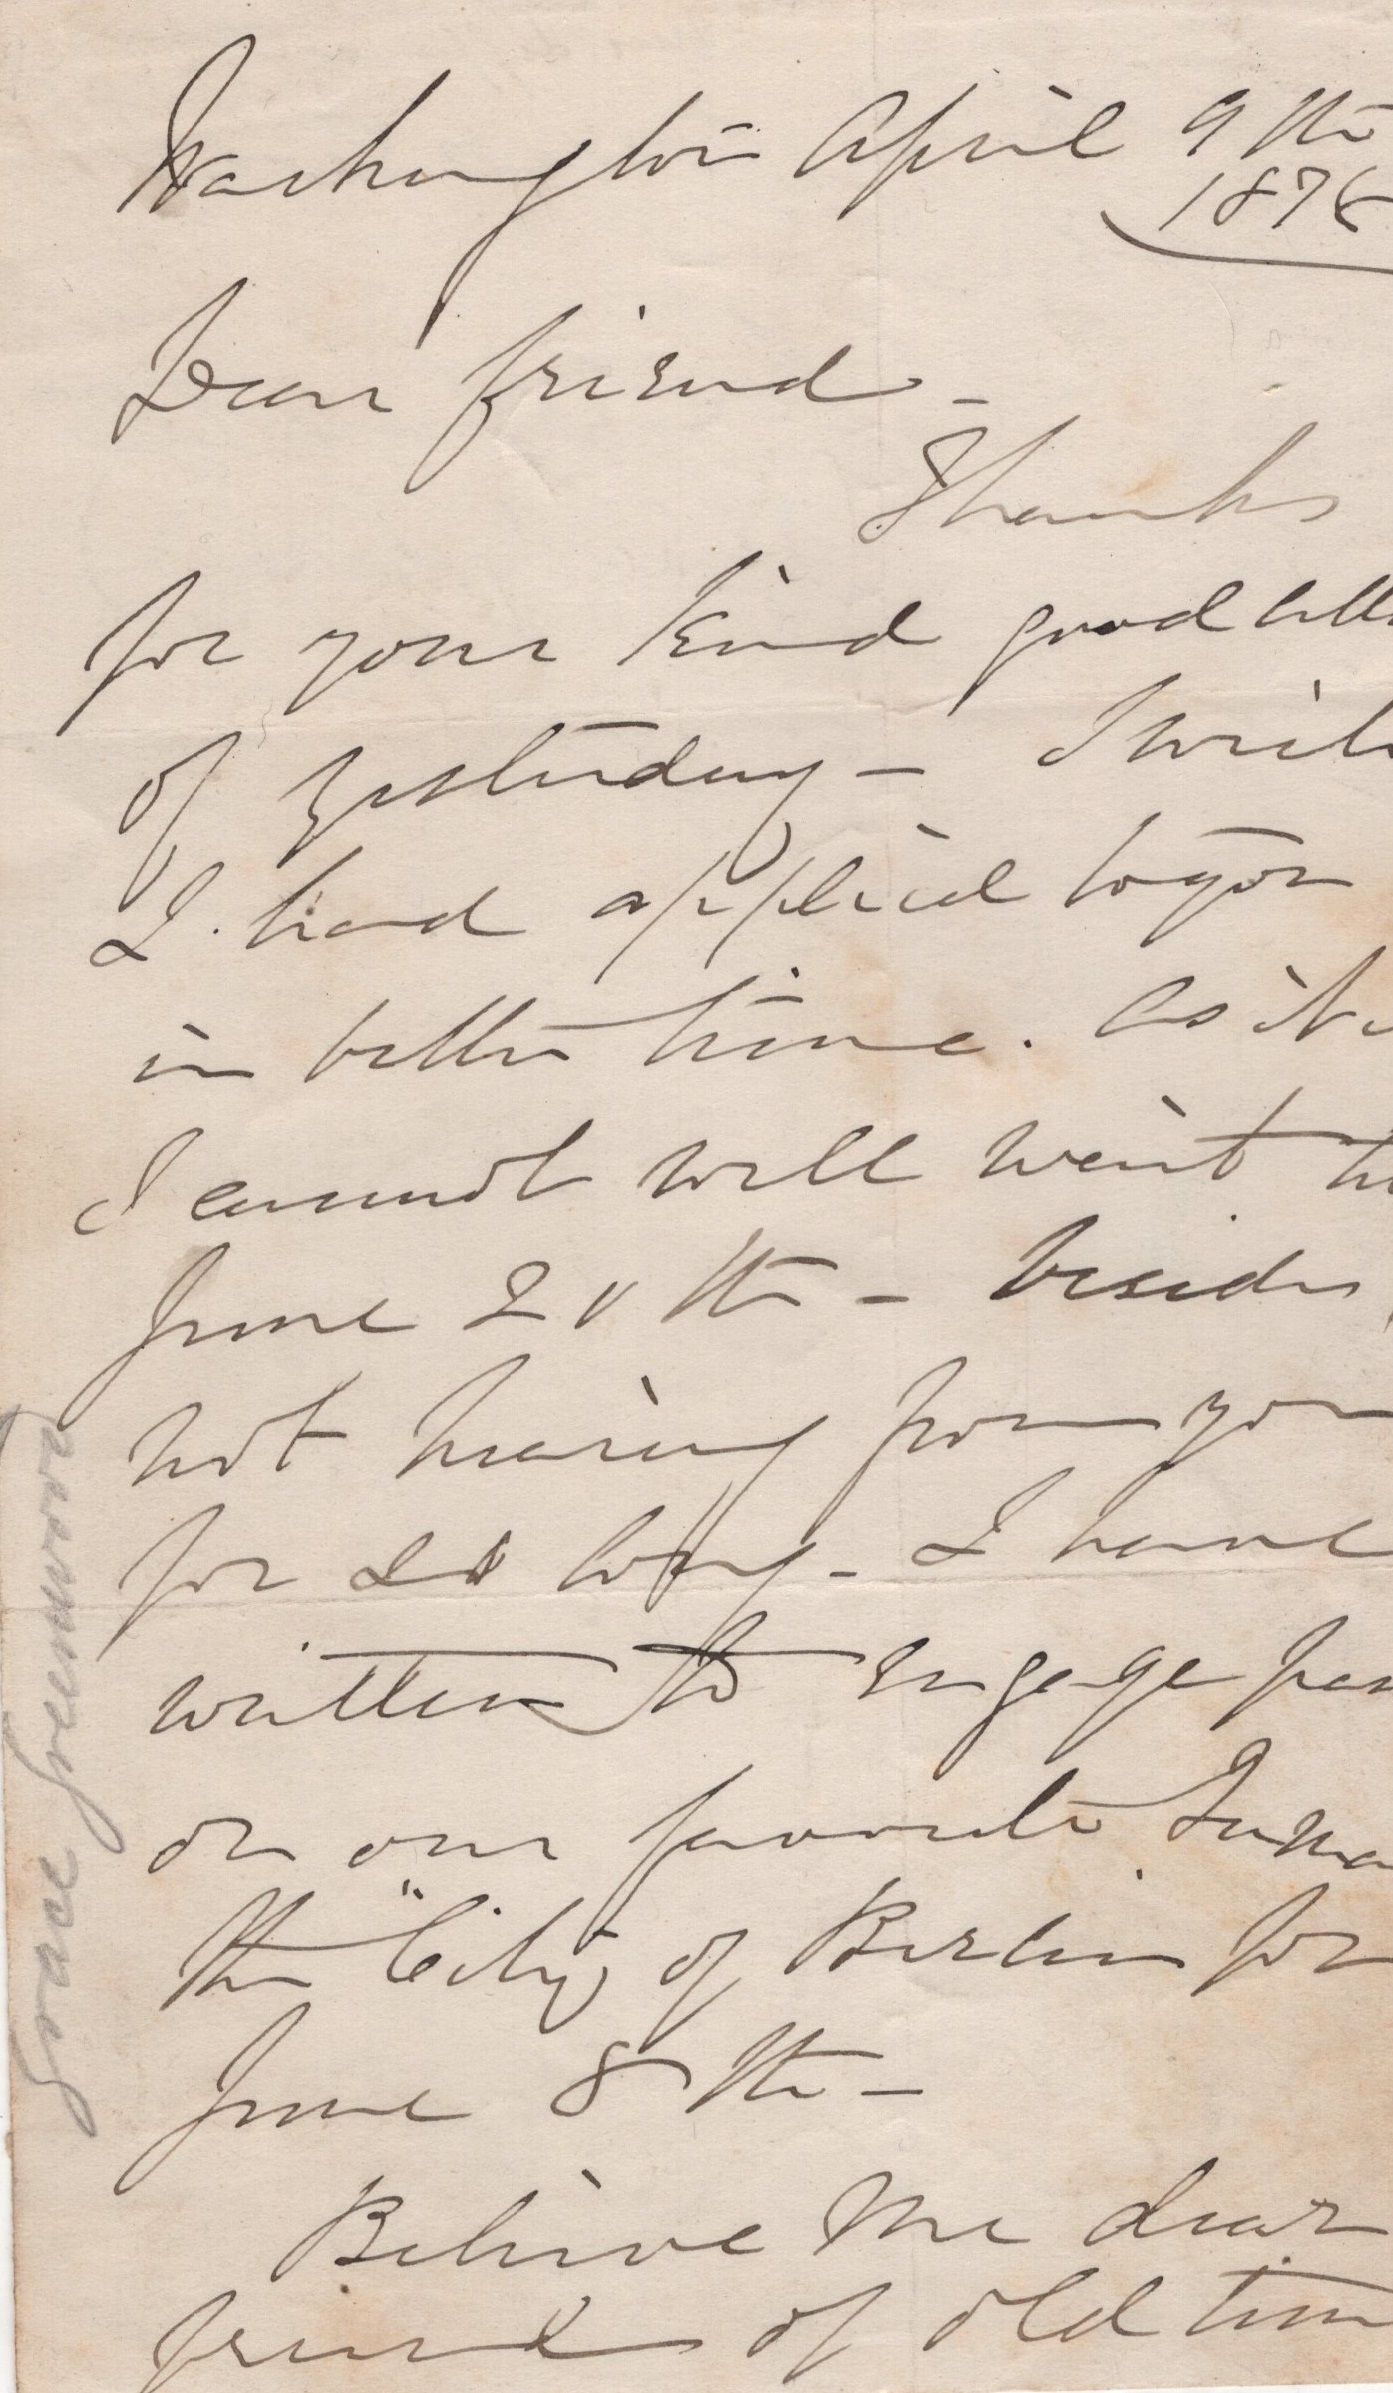 Washington April 9th
1878
Dear friend -
Thanks
for your kind good lette
of yesterday - I wish
I had applied to you
in better time. As it i
I cannot well wait til
June 20th - besides,
not hearing from you
for so long - I have
written to engage pas
on our favorite Inma
the "City of Berlin for
June 8th -
Believe me dear
friend of old time
Grace Greenwood